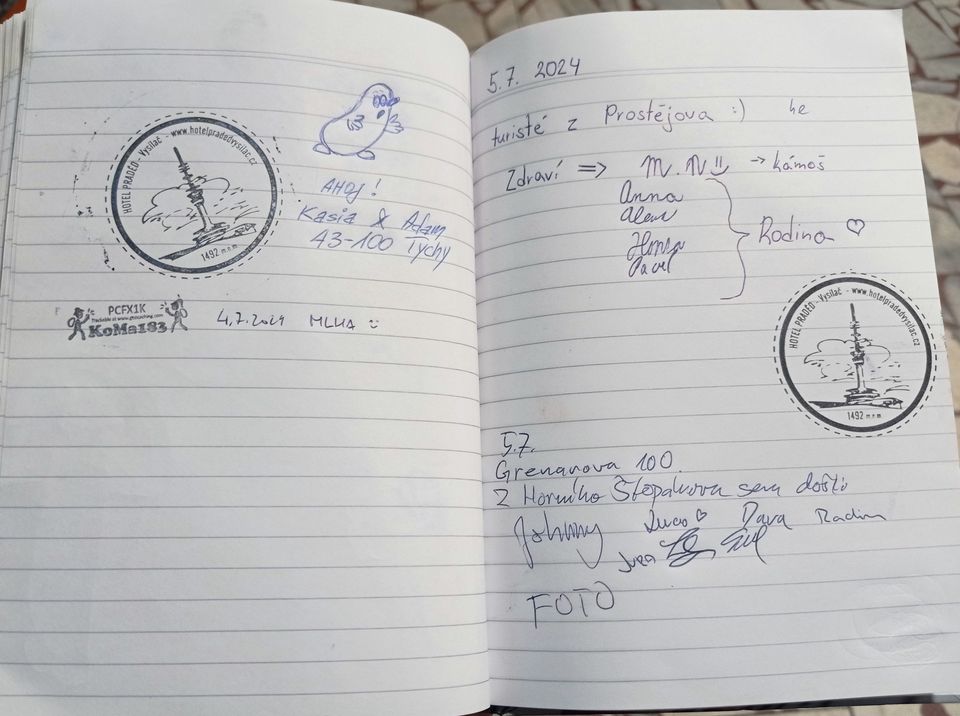 HOTEL PRADĚD - Vysílač - www.hotelpradedvysilac.cz
1492 m n m
AHOJ!
Kasia & Adam
43-100 Tychy
PCFX1K
Trackable at www.geocaching.com
KoMa183
4.7.2024 MLHA
5.7. 2024
turisté z Prostějova :)
Zdraví => M. N → kámoš
Anna
Pavel
Rodina ♡
HOTEL PRADĚD - Vysílač - www.hotelpradedvysilac.cz
1492 m n m
5.7.
Grenarova 100.
Z Horního Štěpánova sem došli
Johnny ♡ Dana Radim
FOTO